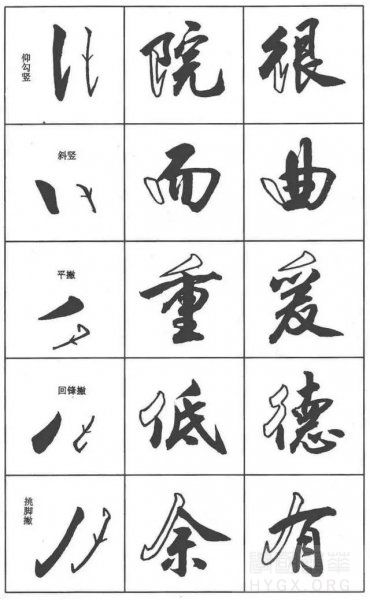 仰勾竖 院 很
斜竖 而 曲
平撇 重 爱
回锋撇 低 德
挑脚撇 余 有
HYGX.ORG